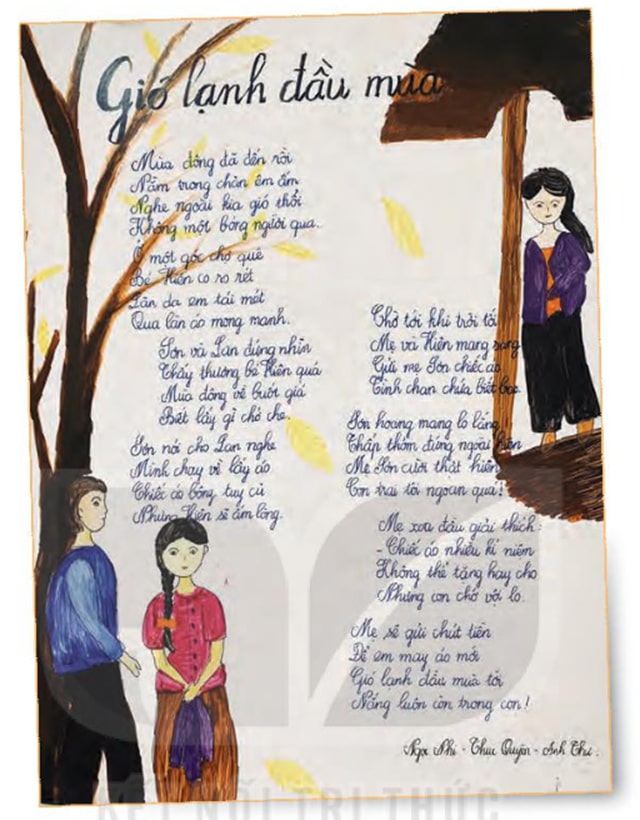 Gió lạnh đầu mùa
Mùa đông đã đến rồi
Nằm trong chăn êm ấm
Nghe ngoài kia gió thổi
Không một bóng người qua.
Ở một góc chợ quê
Bé Hiên co ro rét
Làn da em tái mét
Qua làn áo mong manh.
Sơn và Lan đứng nhìn
Thấy thương bé Hiên quá
Mùa đông về buốt giá
Biết lấy gì chở che.
Sơn nói cho Lan nghe
Mình chạy về lấy áo
Chiếc áo bông tuy cũ
Nhưng Hiên sẽ ấm lòng.
Chờ tới khi trời tối
Mẹ và Hiên mang sang
Gửi mẹ Sơn chiếc áo
Tình chan chứa biết bao.
Sơn hoang mang lo lắng
Thấp thỏm đứng ngoài hiên
Mẹ Sơn cười thật hiền
Con trai tôi ngoan quá!
Mẹ xoa đầu giải thích:
- Chiếc áo nhiều kỉ niệm
Không thể tặng hay cho
Nhưng con chớ vội lo.
Mẹ sẽ gửi chút tiền
Để em may áo mới
Gió lạnh đầu mùa tới
Nắng luôn còn trong con!
Ngọc Nhi - Thục Quyên - Anh Thư.
KẾT NỐI TRI THỨC